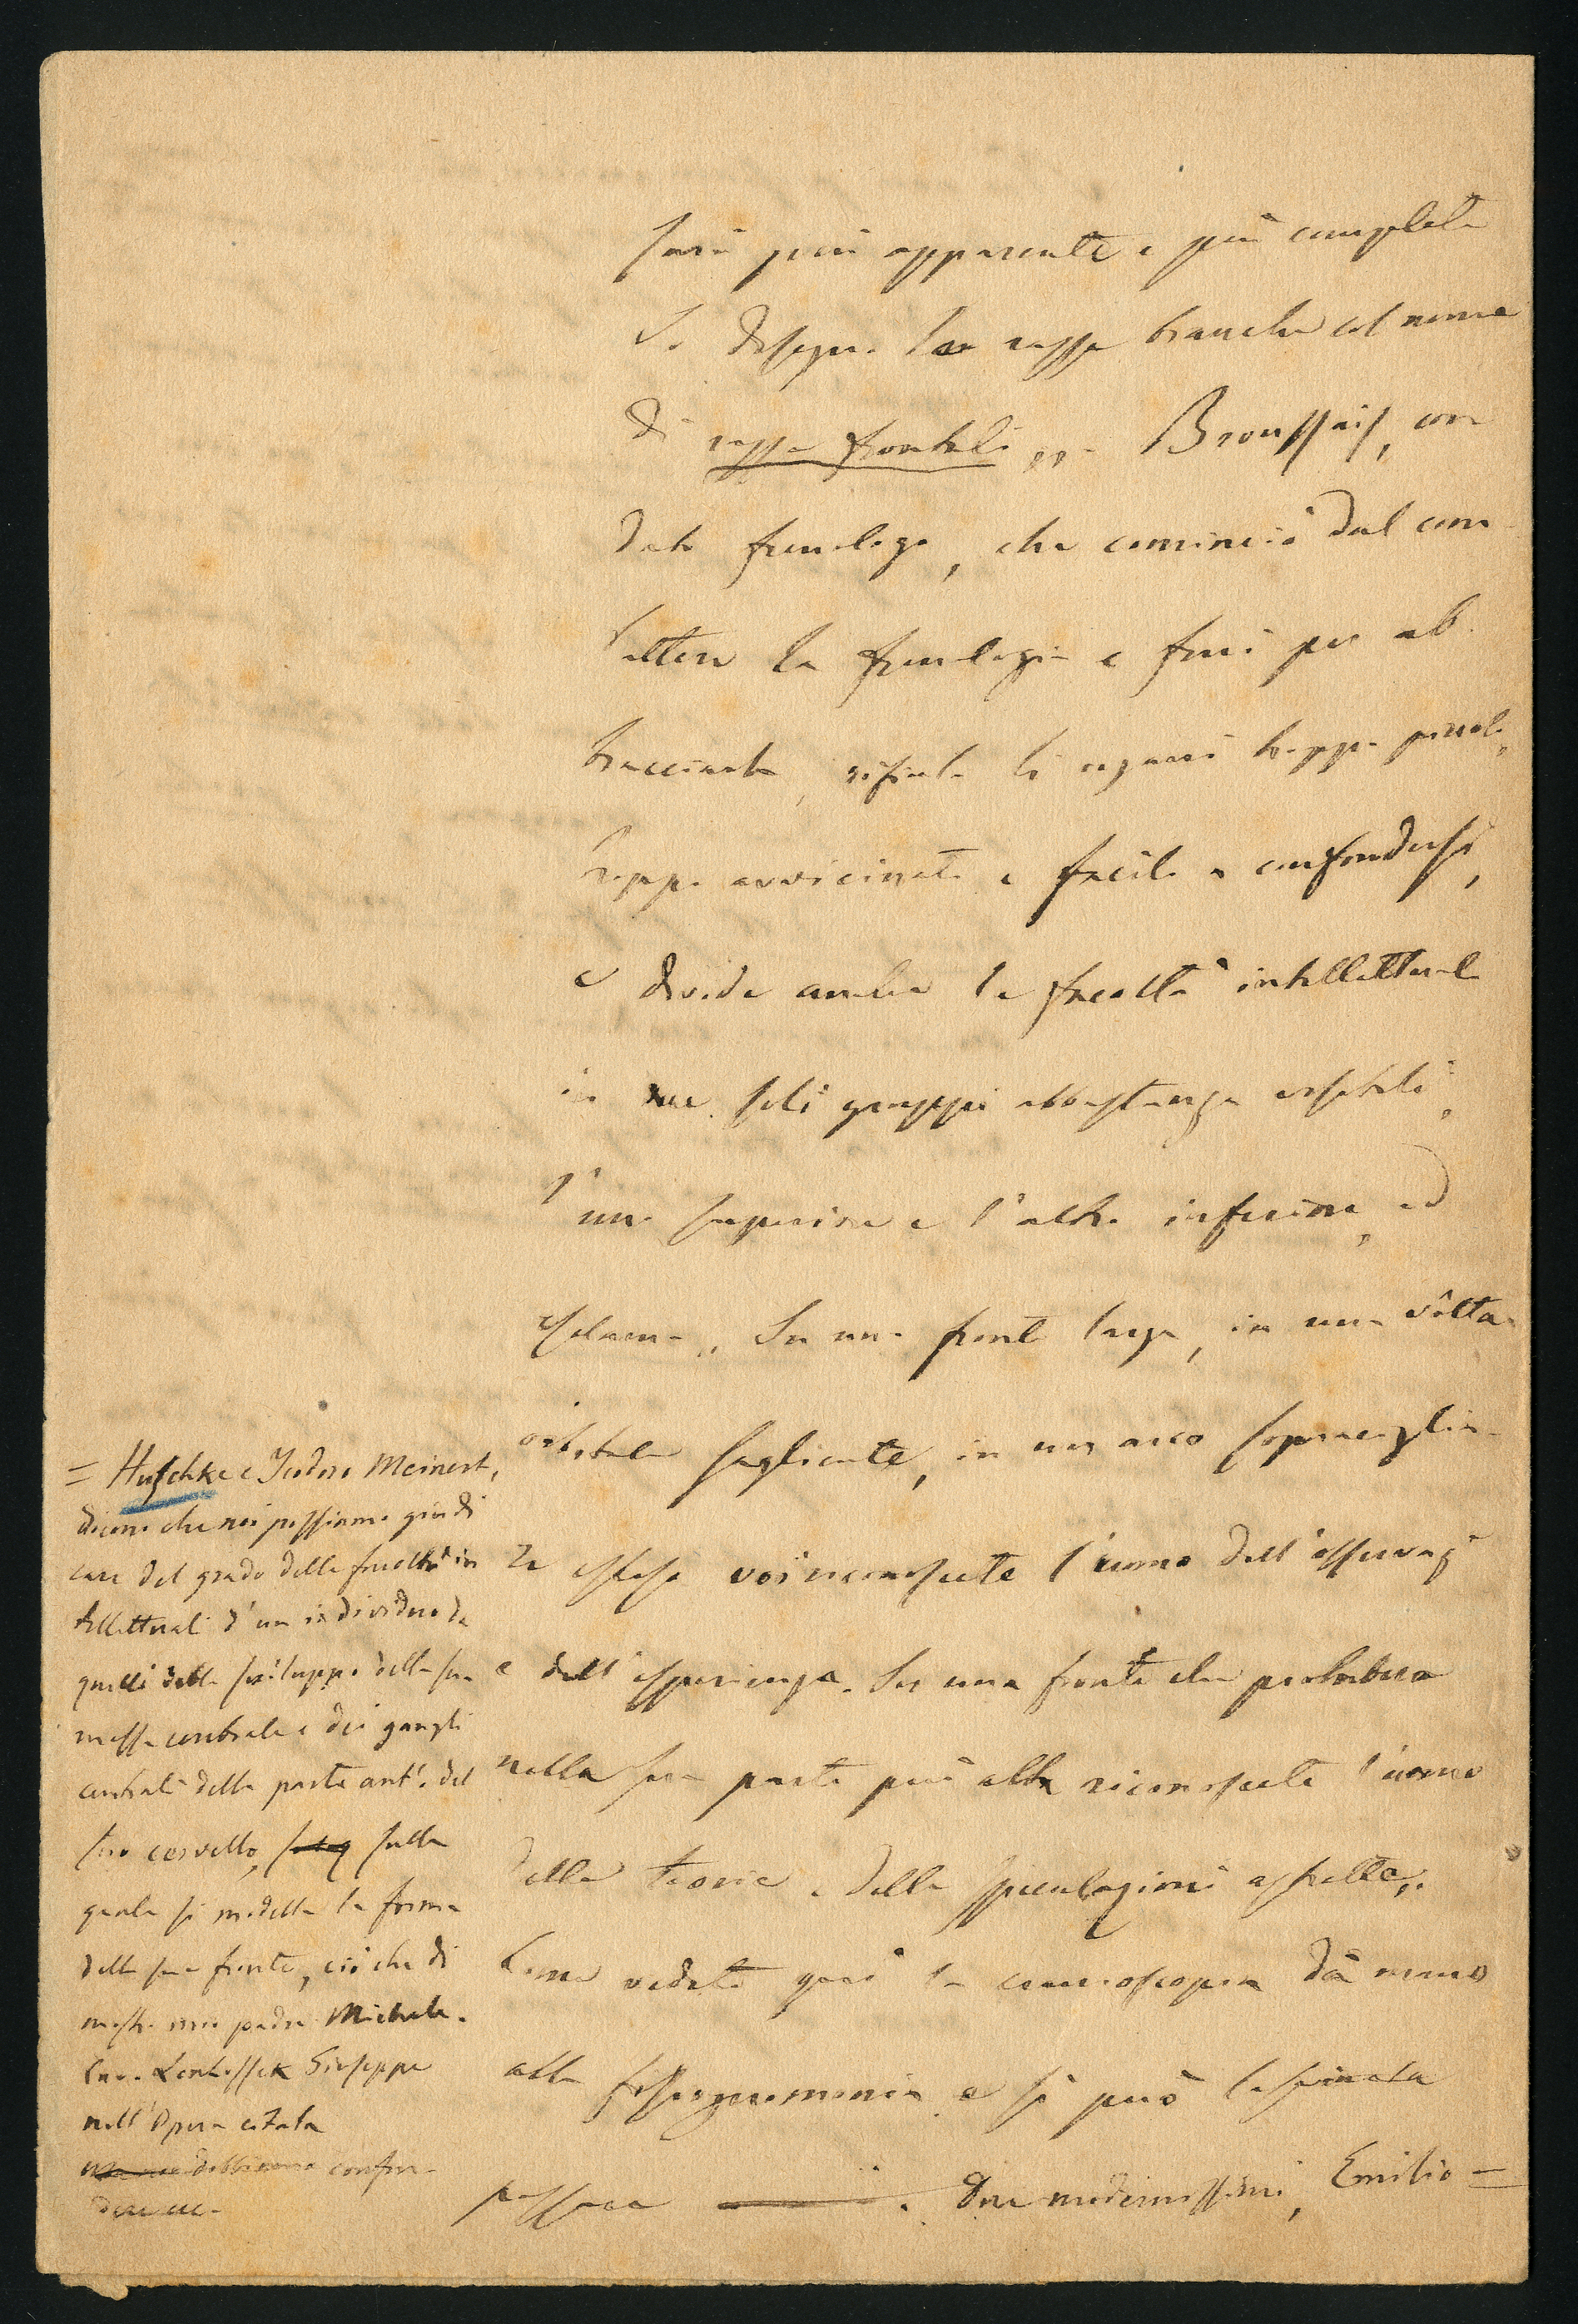 sarà più apparente e più completa
Si disegna la razza bianca col nome
di razza frontale „. Broussais, con
dato frenologo, che cominciò dal com
battere la frenologia e finì per ab
bracciarla, rifiuta li organi troppo piccoli,
troppo avvicinati e facili a confondersi,
e divide anche le facoltà intellettuali
in due soli gruppi abbastanza
l'uno superiore e l'altro inferiore, ed
esclama „ In una fronte larga, in una vôlta
orbitale sagliente, in un arco sopracciglia
re esteso voi riconoscete l'uomo dell'osservaz
e dell'esperienza. In una fronte che
nella sua parte più alta riconoscete l'uomo
delle teorie e delle speculazioni astratte„.
Come vedete quì la cranioscopia dà mano
alla fisiognomonia e si può
passare . Due modernissimi, Emilio =
= Huschke e Teodoro Meinert,
dicono che noi possiamo giudi
care del grado delle facoltà in
tellettuali d'un individuo da
quelli dello sviluppo della sua
massa cerebrale e dei gangli
centrali della parte ant.e del
suo cervello, sulla
quale si modella la forma
della sua fronte, ciò che di
mostra mio padre Michele.
Lenhossek Giuseppe
nell'Opera citata
dobbiamo confon-
dere